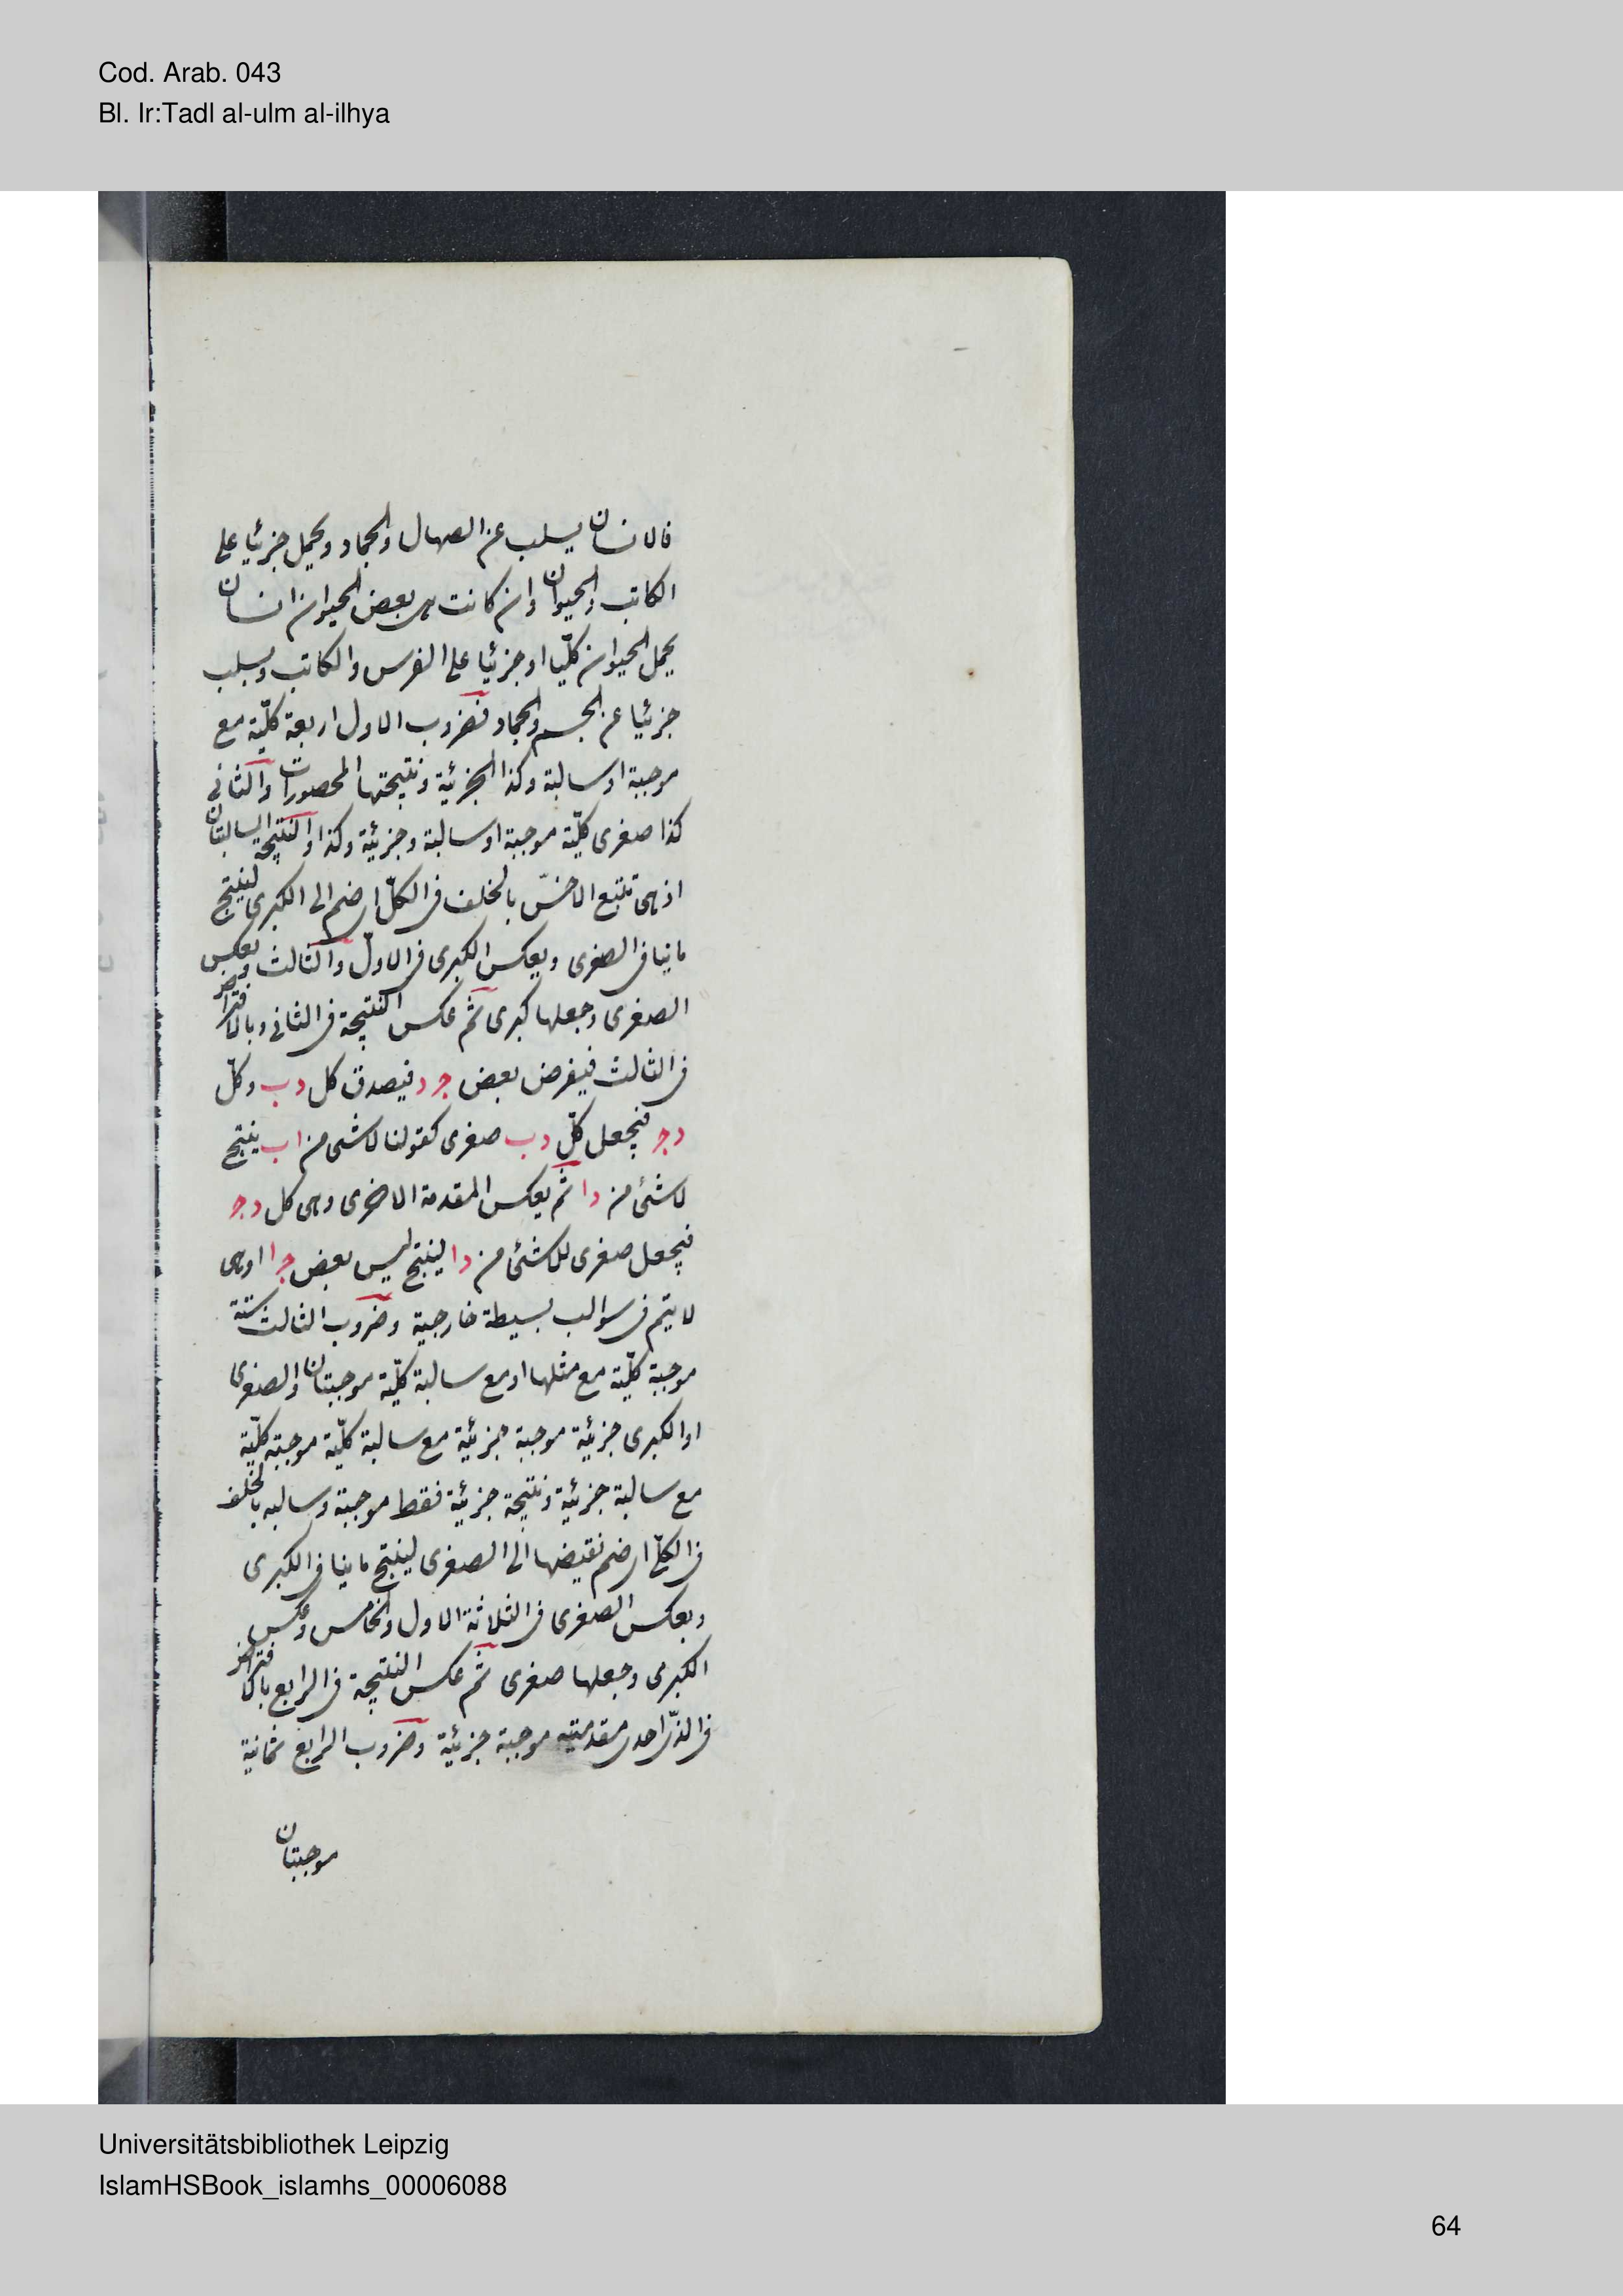 Cod. Arab. 043
Bl. Ir:Tadl al-ulm al-ilhya
فالانسان يسلب عن الصهال والجماد ويحمل جزئيا على
الكاتب والحيوان وان كانت هى بعض الحيوان انسان
يحمل الحيوان كلّيا او جزئيا على الفرس والكاتب ويسلب
جزئيا عن الجسم والجماد فضروب الاول اربعة كلّية مع
موجبة او سالبة وكذا الجزئية ونتيجتها المحصورات والثانى
كذا صغرى كلّية موجبة او سالبة وجزئية وكذا والنتيجة السالبتان
اذ هى تتبع الاخسّ بالخلف فى الكلّ اى ضم الى الكبرى لينتج
ماينافى الصغرى وبعكس الكبرى فى الاول والثالث وبعكس
الصغرى وجعلها كبرى ثم عكس النتيجة فى الثانى وبالافتراض
فى الثالث فيفرض بعض ج د فيصدق كل د ب وكلّ
د ج فيجعل كلّ د ب صغرى كقولنا لاشى من ا ب ينتج
لاشئ من د ا ثم يعكس المقدمة الاخرى وهى كل د ج
فيجعل صغرى للاشئ من د ا لينتج ليس بعض ج ا اوهى
لايتم فى سوالب بسيطة خارجية وضروب الثالث ستة
موجبة كلّية مع مثلها او مع سالبة كلّية موجبتان والصغرى
او الكبرى جزئية موجبة جزئية مع سالبة كلّية موجبة كلّية
مع سالبة جزئية ونتيجة جزئية فقط موجبة وسالبه بالخلف
فى الكلّ اى ضم نقيضها الى الصغرى لينتج ماينافى الكبرى
وبعكس الصغرى فى الثلاثة الاول والخامس وعكس
الكبرى وجعلها صغرى ثم عكس النتيجة فى الرابع بالافتراض
فى الذى احدى مقدمتيه موجبة جزئية وضروب الرابع ثمانية
موجبتان
Universitätsbibliothek Leipzig
IslamHSBook_islamhs_00006088
64